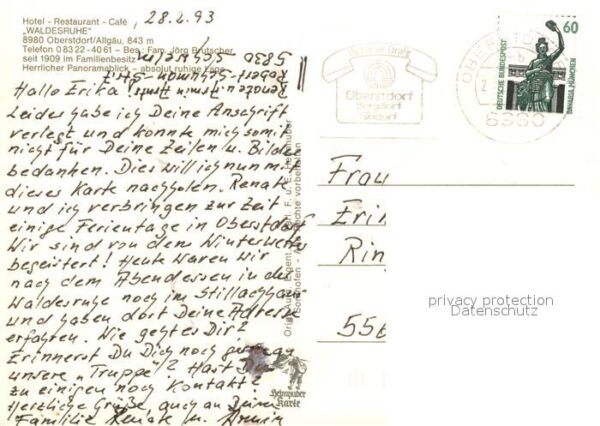 Hotel - Restaurant - Café
„WALDESRUHE"
8980 Oberstdorf/Allgäu, 843 m
Telefon 0 83 22 - 40 61 – Bes.: Fam. Jörg Brutscher
seit 1909 im Familienbesitz
Herrlicher Panoramablick – absolut ruhige Lage
28.2.93
Hallo Erika!
Leider habe ich Deine Anschrift
verlegt und konnte mich somit
nicht für Deine Zeilen u. Bilder
bedanken. Dies will ich nun mit
dieses Karte nachholen. Renate
und ich verbringen zur Zeit
einige Ferientage in Oberstdorf
Wir sind von dem Winterwetter
begeistert! Heute waren wir
nach dem Abendessen in der
Waldesruhe noch im Stillachhaus
und haben dort Deine Adresse
erfahren. Wie geht es Dir?
Erinnerst Du Dich noch
unsere „Truppe"? Hast Du
zu einigen noch Kontakt?
Herzliche Grüße, auch an Deine
Familie Renate u. Armin
5830 Schwelm
Robert-Schumann-Str.
Oberstdorf
Bergdorf
Skidorf
OBERSTDORF
8980
60
DEUTSCHE BUNDESPOST
BAVARIA MÜNCHEN
Frau
Eri
Rin
55
privacy protection
Datenschutz
Karte